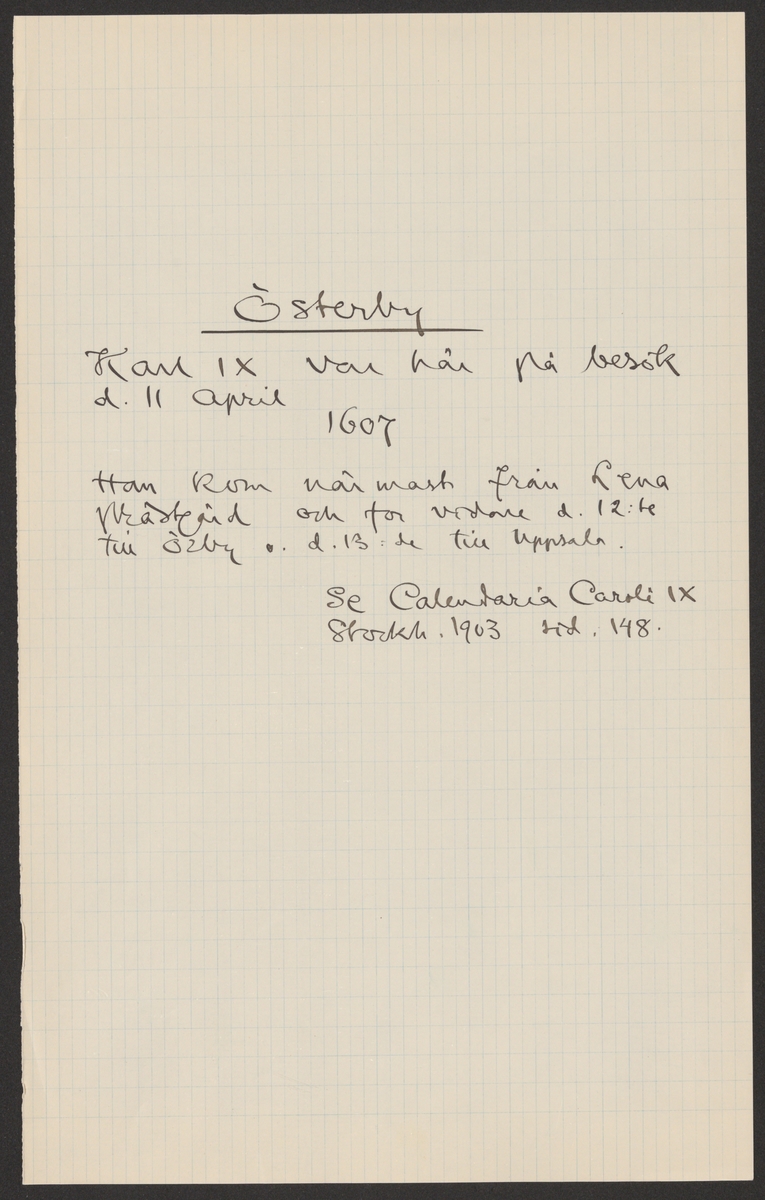 Österby
Karl IX var här på besök
d. 11 April
1607
Han kom närmast från Lena
Prästgård och for vidare d. 12:te
till Örby o. d. 13:de till Uppsala.
Se Calendaria Caroli IX
Stockh. 1903 sid. 148.